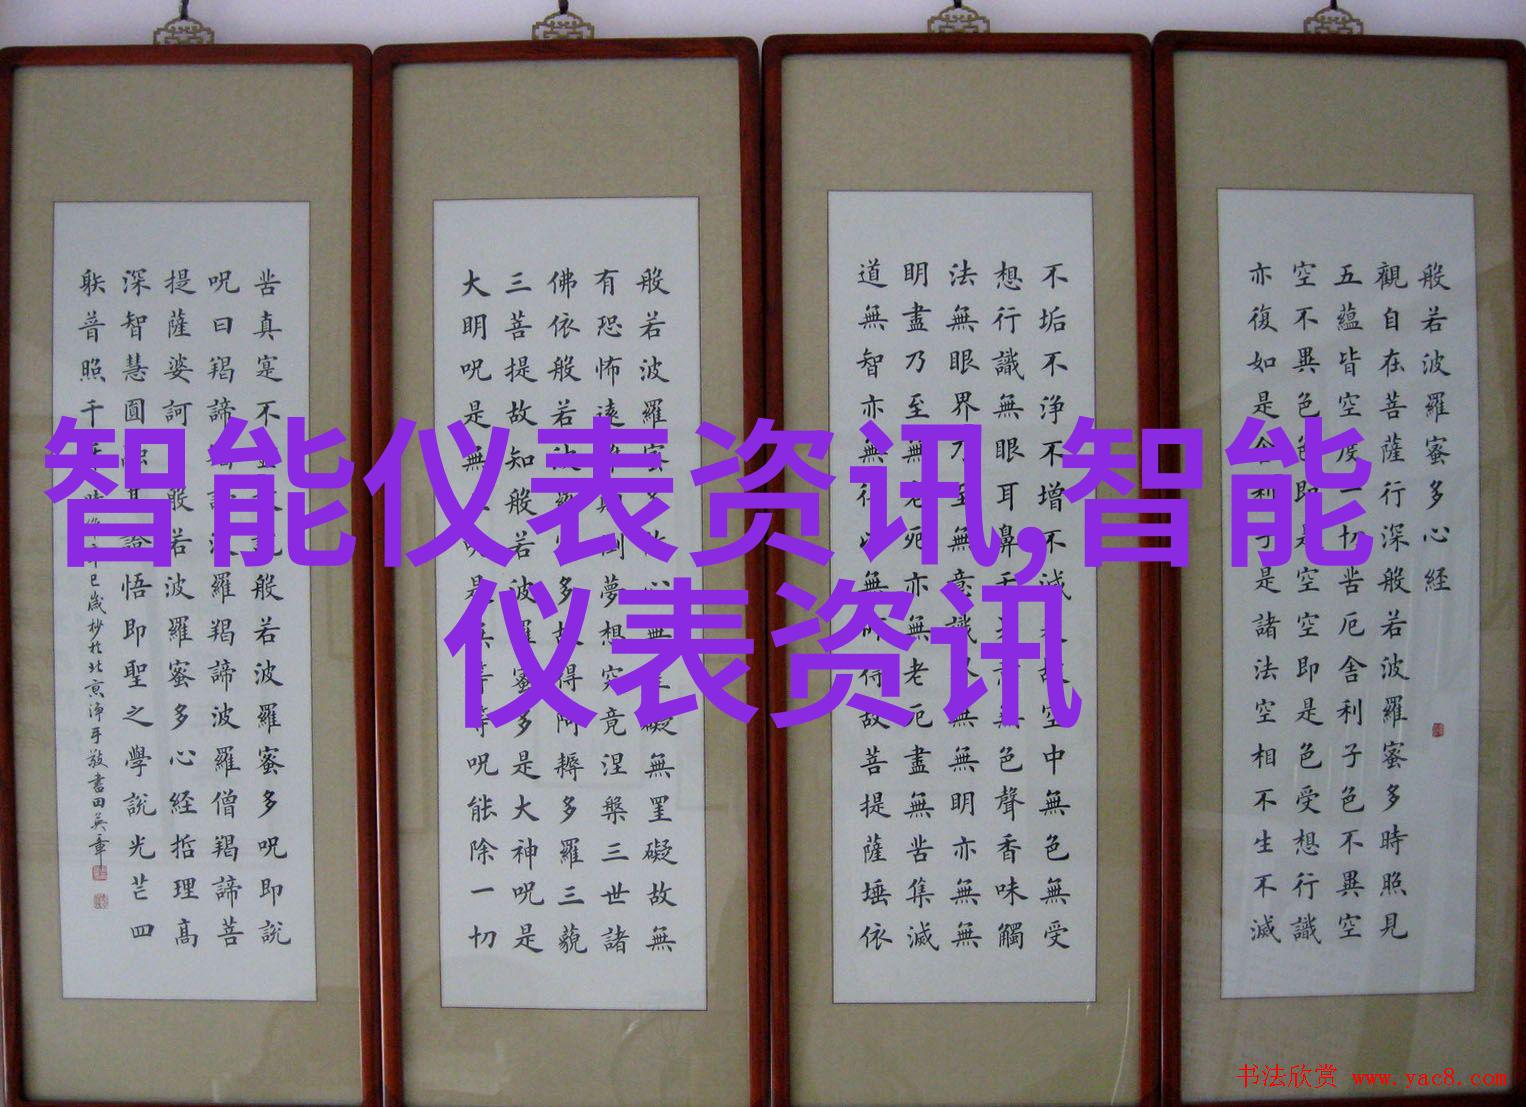 智能仪表资讯,智能
仪表资讯
般若波羅蜜多心経
觀自在菩薩行深般若波羅蜜多時照見
五蘊皆空度一切苦厄舍利子色不異空
空不異色色即是空空即是色受想行識
亦復如是舍利子是諸法空相不生不滅
不垢不浄不增不減是故空中無色無受
想行識無眼耳鼻舌身意無色聲香味觸
法無眼界乃至無意識界無無明亦無無
明盡乃至無老死亦無老死盡無苦集滅
道無智亦無得以無所得故菩提薩埵依
般若波羅蜜多故心無罣礙無罣礙故無
有恐怖遠離顛倒夢想究竟涅槃三世諸
佛依般若波羅蜜多故得阿耨多羅三藐
三菩提故知般若波羅蜜多是大神呪是
大明呪是無上呪是無等等呪能除一切
苦真寔不虛故說般若波羅蜜多呪即説
呪曰羯諦羯諦波羅羯諦波羅僧羯諦菩
提薩婆訶般若波羅蜜多心経哲理高
深智慧圓融其證悟即聖之學說光芒四
躲普照千巳歲杪於北京淨手敬書田英章
书法欣赏 www.yac8.com